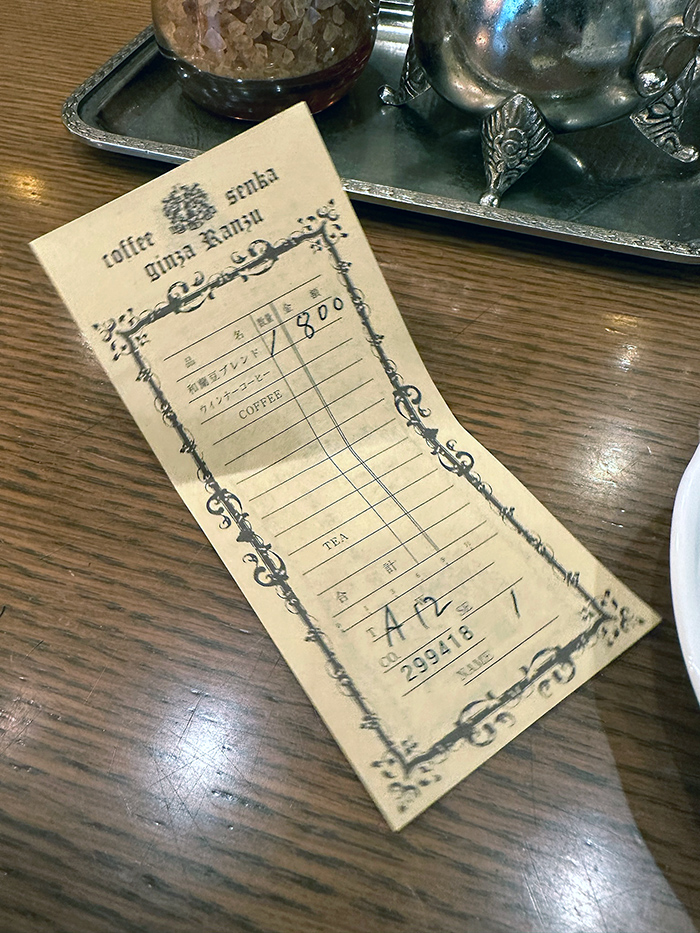 coffee senka
ginza Ranzu
品 名 数量 金 額
和蘭豆ブレンド 1 800
ウィンナーコーヒー
COFFEE
TEA
合 計
T A12 SE 1
CO. 299418
NAME